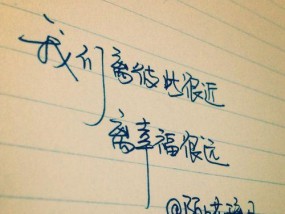 我们离彼此很近
离幸福很远